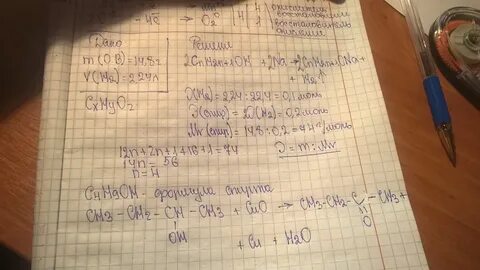 O₂
окислитель
восстановитель
Дано
m(OB)=14,8г
V(H₂)=2,24л
CxHyOz
Решение
2CnH2n+1OH + 2Na → 2CnH2n+1ONa +
+ H₂↑
ν(H₂) = 2,24 : 22,4 = 0,1 моль
ν(спир) = 2ν(H₂) = 0,2 моль
Mr(спир) = 14,8 : 0,2 = 74 г/моль
12n+2n+1+16+1=74
14n = 56
n=4
ν = m : Mr
C₄H₉OH - формула спирта
CH₃ - CH₂ - CH - CH₃ + CuO → CH₃-CH₂- C - CH₃ +
OH
O
+ Cu + H₂O